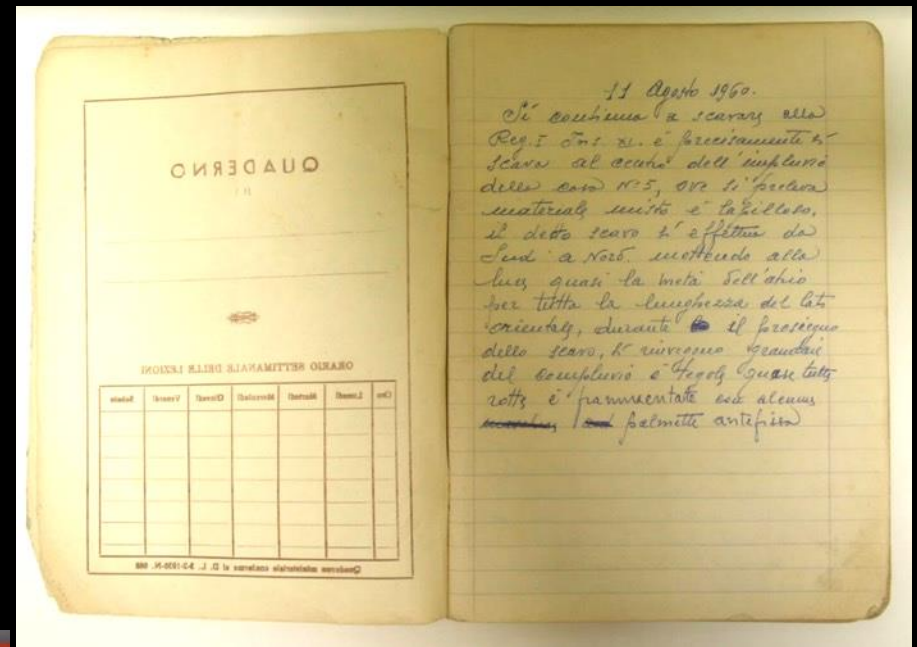 QUADERNO
DI
ORARIO SETTIMANALE DELLE LEZIONI
Ore Lunedì Martedì Mercoledì Giovedì Venerdì Sabato
Quaderno autarchico conforme al D. L. 5-2-1936-N. 988
11 Agosto 1960.
Si continua a scavare alla
Reg. I Ins. XI. e precisamente si
scava al centro dell'impluvio
della casa N. 5, ove si preleva
materiale misto e lapilloso,
il detto scavo si effettua da
Sud a Nord mettendo alla
luce quasi la metà dell'atrio
per tutta la lunghezza del lato
orientale, durante il prosieguo
dello scavo, si rinvengono
del compluvio e tegole quase tutte
rotte e frammentate con alcune
palmette antefissa